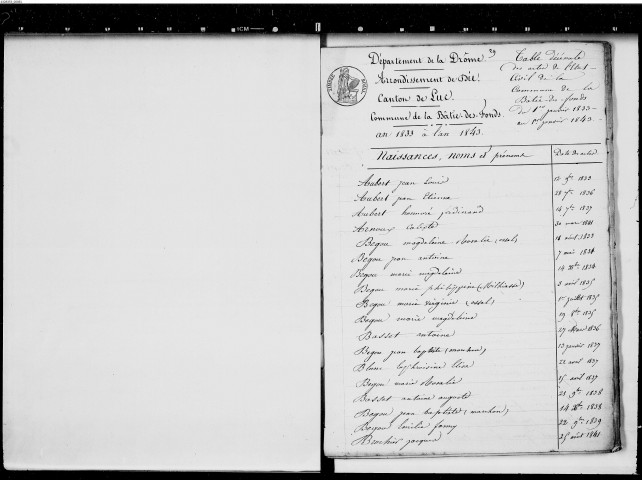 Département de la Drôme. 29
Arrondissement de Die.
Canton de Luc.
Commune de la Bâtie-des-fonds.
an 1833 à l'an 1843.
Table Décenale
des actes de l'Etat
Civil de la
Commune de la
Bâtie-des-fonds
du 1er janvier 1833
au 1er janvier 1843
Naissances, noms et prénoms Date des actes
Aubert jean Louis 12 9bre 1833
Aubert jean Etienne 28 7bre 1836
Aubert honnoré ferdinand 14 7bre 1837
Arnoux calixte 30 mars 1841
Begou magdelaine Rosalie 18 avril 1833
Begou jean antoine 7 mai 1834
Begou marie magdelaine 14 Xbre 1834
Begou marie philippine 3 avril 1835
Begou marie virginie 1er juillet 1835
Begou marie magdelaine 19 8bre 1835
Basset antoine 27 Mars 1836
Begou jean baptiste 13 janvier 1837
Blanc Euphroisine Elisa 22 avril 1837
Begou marie Rosalie 15 avril 1837
Basset antoine auguste 21 9bre 1838
Begou jean baptiste 14 Xbre 1838
Begou Emilie fanny 22 9bre 1839
jacques 25 août 1841
ICM